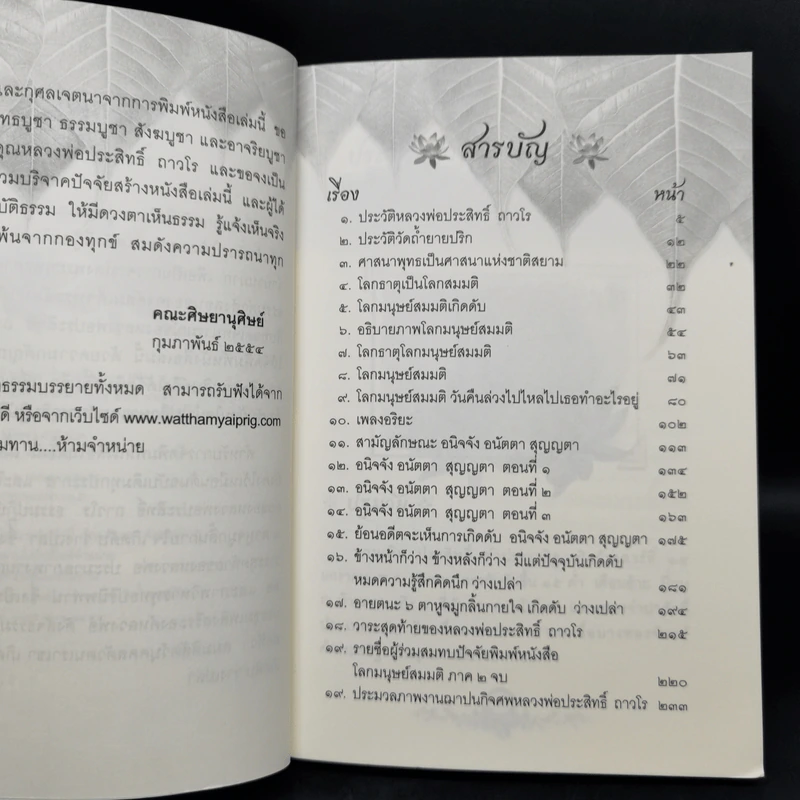 และกุศลเจตนาจากการพิมพ์หนังสือเล่มนี้ ขอ
ทธบูชา ธรรมบูชา สังฆบูชา และอาจริยบูชา
คุณหลวงพ่อประสิทธิ์ ถาวโร และขอจงเป็น
วมบริจาคปัจจัยสร้างหนังสือเล่มนี้ และผู้ได้
บัติธรรม ให้มีดวงตาเห็นธรรม รู้แจ้งเห็นจริง
พ้นจากกองทุกข์ สมดังความปรารถนาทุก
คณะศิษยานุศิษย์
กุมภาพันธ์ ๒๕๕๔
ธรรมบรรยายทั้งหมด สามารถรับฟังได้จาก
ดี หรือจากเว็บไซต์ www.watthamyaiprig.com
มทาน....ห้ามจำหน่าย
สารบัญ
เรื่อง หน้า
๑. ประวัติหลวงพ่อประสิทธิ์ ถาวโร ๕
๒. ประวัติวัดถ้ำยายปริก ๑๒
๓. ศาสนาพุทธเป็นศาสนาแห่งชาติสยาม ๒๒
๔. โลกธาตุเป็นโลกสมมติ ๓๒
๕. โลกมนุษย์สมมติเกิดดับ ๔๓
๖. อธิบายภาพโลกมนุษย์สมมติ ๕๔
๗. โลกธาตุโลกมนุษย์สมมติ ๖๓
๘. โลกมนุษย์สมมติ ๗๑
๙. โลกมนุษย์สมมติ วันคืนล่วงไปไหลไปเธอทำอะไรอยู่ ๘๐
๑๐. เพลงอริยะ ๑๐๒
๑๑. สามัญลักษณะ อนิจจัง อนัตตา สุญญตา ๑๑๓
๑๒. อนิจจัง อนัตตา สุญญตา ตอนที่ ๑ ๑๓๔
๑๓. อนิจจัง อนัตตา สุญญตา ตอนที่ ๒ ๑๕๒
๑๔. อนิจจัง อนัตตา สุญญตา ตอนที่ ๓ ๑๖๓
๑๕. ย้อนอดีตจะเห็นการเกิดดับ อนิจจัง อนัตตา สุญญตา ๑๗๕
๑๖. ข้างหน้าก็ว่าง ข้างหลังก็ว่าง มีแต่ปัจจุบันเกิดดับ
หมดความรู้สึกคิดนึก ว่างเปล่า ๑๘๑
๑๗. อายตนะ ๖ ตาหูจมูกลิ้นกายใจ เกิดดับ ว่างเปล่า ๑๙๔
๑๘. วาระสุดท้ายของหลวงพ่อประสิทธิ์ ถาวโร ๒๑๕
๑๙. รายชื่อผู้ร่วมสมทบปัจจัยพิมพ์หนังสือ
โลกมนุษย์สมมติ ภาค ๒ จบ ๒๒๐
๑๙. ประมวลภาพงานฌาปนกิจศพหลวงพ่อประสิทธิ์ ถาวโร ๒๓๓